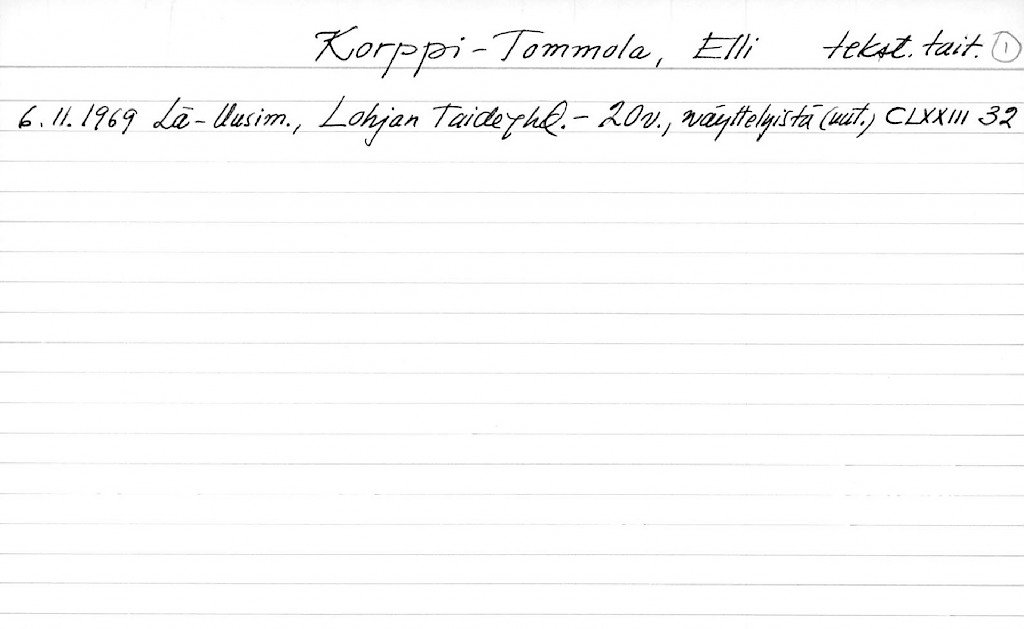 Korppi-Tommola, Elli tekst. tait. 1
6.11.1969 Lä-Uusim., Lohjan Taideyhd. - 20v., näyttelyistä (uut.) CLXXIII 32